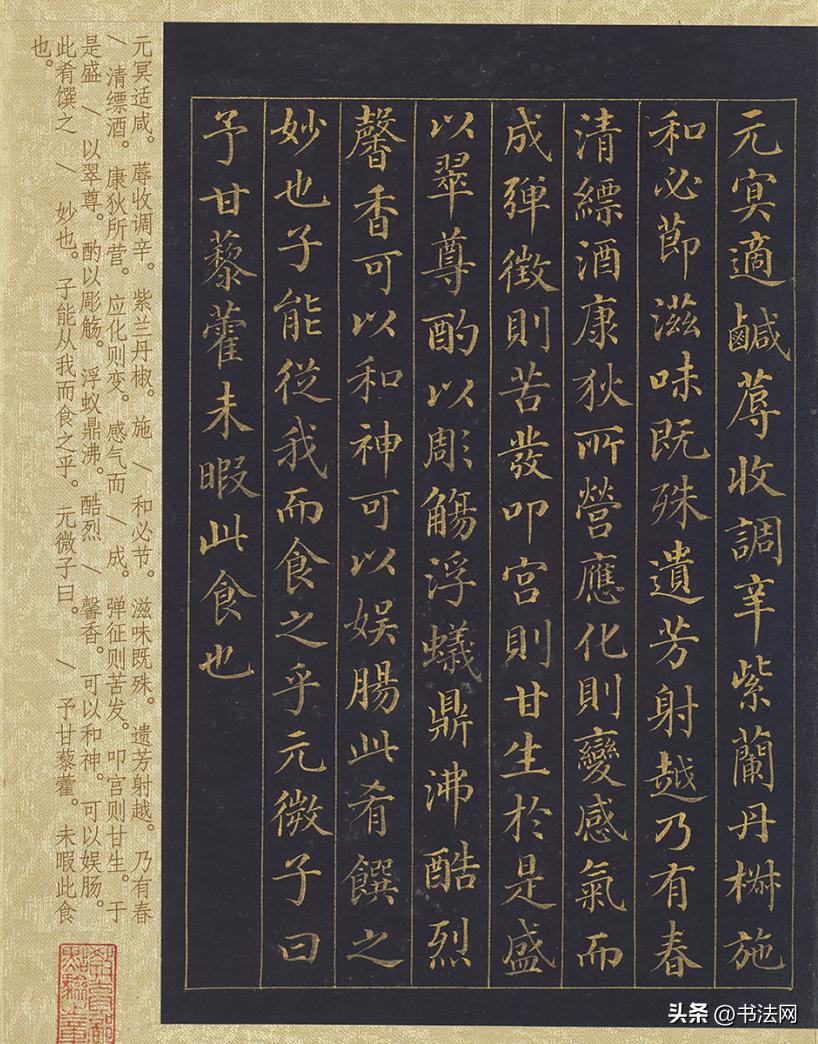 元冥適鹹蓐收調辛紫蘭丹椒施
和必節滋味既殊遺芳射越乃有春
清縹酒康狄所營應化則變感氣而
成彈徵則苦發叩宮則甘生於是盛
以翠尊酌以彫觴浮蟻鼎沸酷烈
馨香可以和神可以娱腸此肴饌之
妙也子能從我而食之乎元微子曰
予甘藜藿未暇此食也
元冥适咸。蓐收调辛。紫兰丹椒。施 / 和必节。滋味既殊。遗芳射越。乃有春
/ 清缥酒。康狄所营。应化则变。感气而 / 成。弹征则苦发。叩宫则甘生。于
是盛 / 以翠尊。酌以彫觞。浮蚁鼎沸。酷烈 / 馨香。可以和神。可以娱肠。
此肴馔之 / 妙也。子能从我而食之乎。元微子曰。 / 予甘藜藿。未暇此食
也。
头条 @书法网